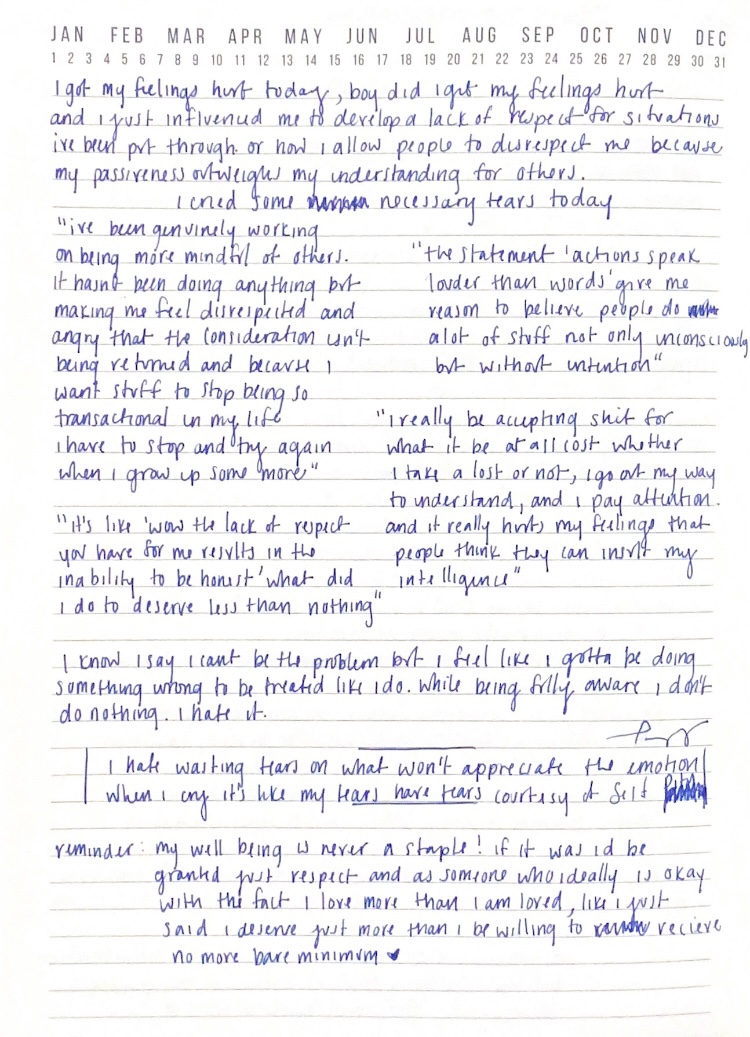 JAN FEB MAR APR MAY JUN JUL AUG SEP OCT NOV DEC
1 2 3 4 5 6 7 8 9 10 11 12 13 14 15 16 17 18 19 20 21 22 23 24 25 26 27 28 29 30 31
I got my feelings hurt today, boy did i get my feelings hurt
and i just influenced me to develop a lack of respect for situations
ive been put through or how i allow people to disrespect me because
my passiveness outweighs my understanding for others.
I cried some necessary tears today
"ive been genuinely working
on being more mindful of others.
it hasnt been doing anything but
making me feel disrespected and
angry that the consideration isn't
being returned and because i
want stuff to stop being so
transactional in my life
i have to stop and try again
when i grow up some more"
"the statement 'actions speak
louder than words' give me
reason to believe people do
alot of stuff not only unconsciously
but without intention"
"i really be accepting shit for
what it be at all cost whether
I take a lost or not, i go out my way
to understand, and i pay attention.
and it really hurts my feelings that
people think they can insult my
intelligence"
"it's like 'wow the lack of respect
you have for me results in the
inability to be honest' what did
i do to deserve less than nothing"
I know i say i cant be the problem but i feel like i gotta be doing
something wrong to be treated like i do. While being fully aware i don't
do nothing. I hate it.
I hate wasting tears on what won't appreciate the emotion
When i cry it's like my tears have tears courtesy of self
reminder: my well being is never a staple! if it was id be
granted just respect and as someone who ideally is okay
with the fact I love more than I am loved, like i just
said i deserve just more than i be willing to recieve
no more bare minimum ♥